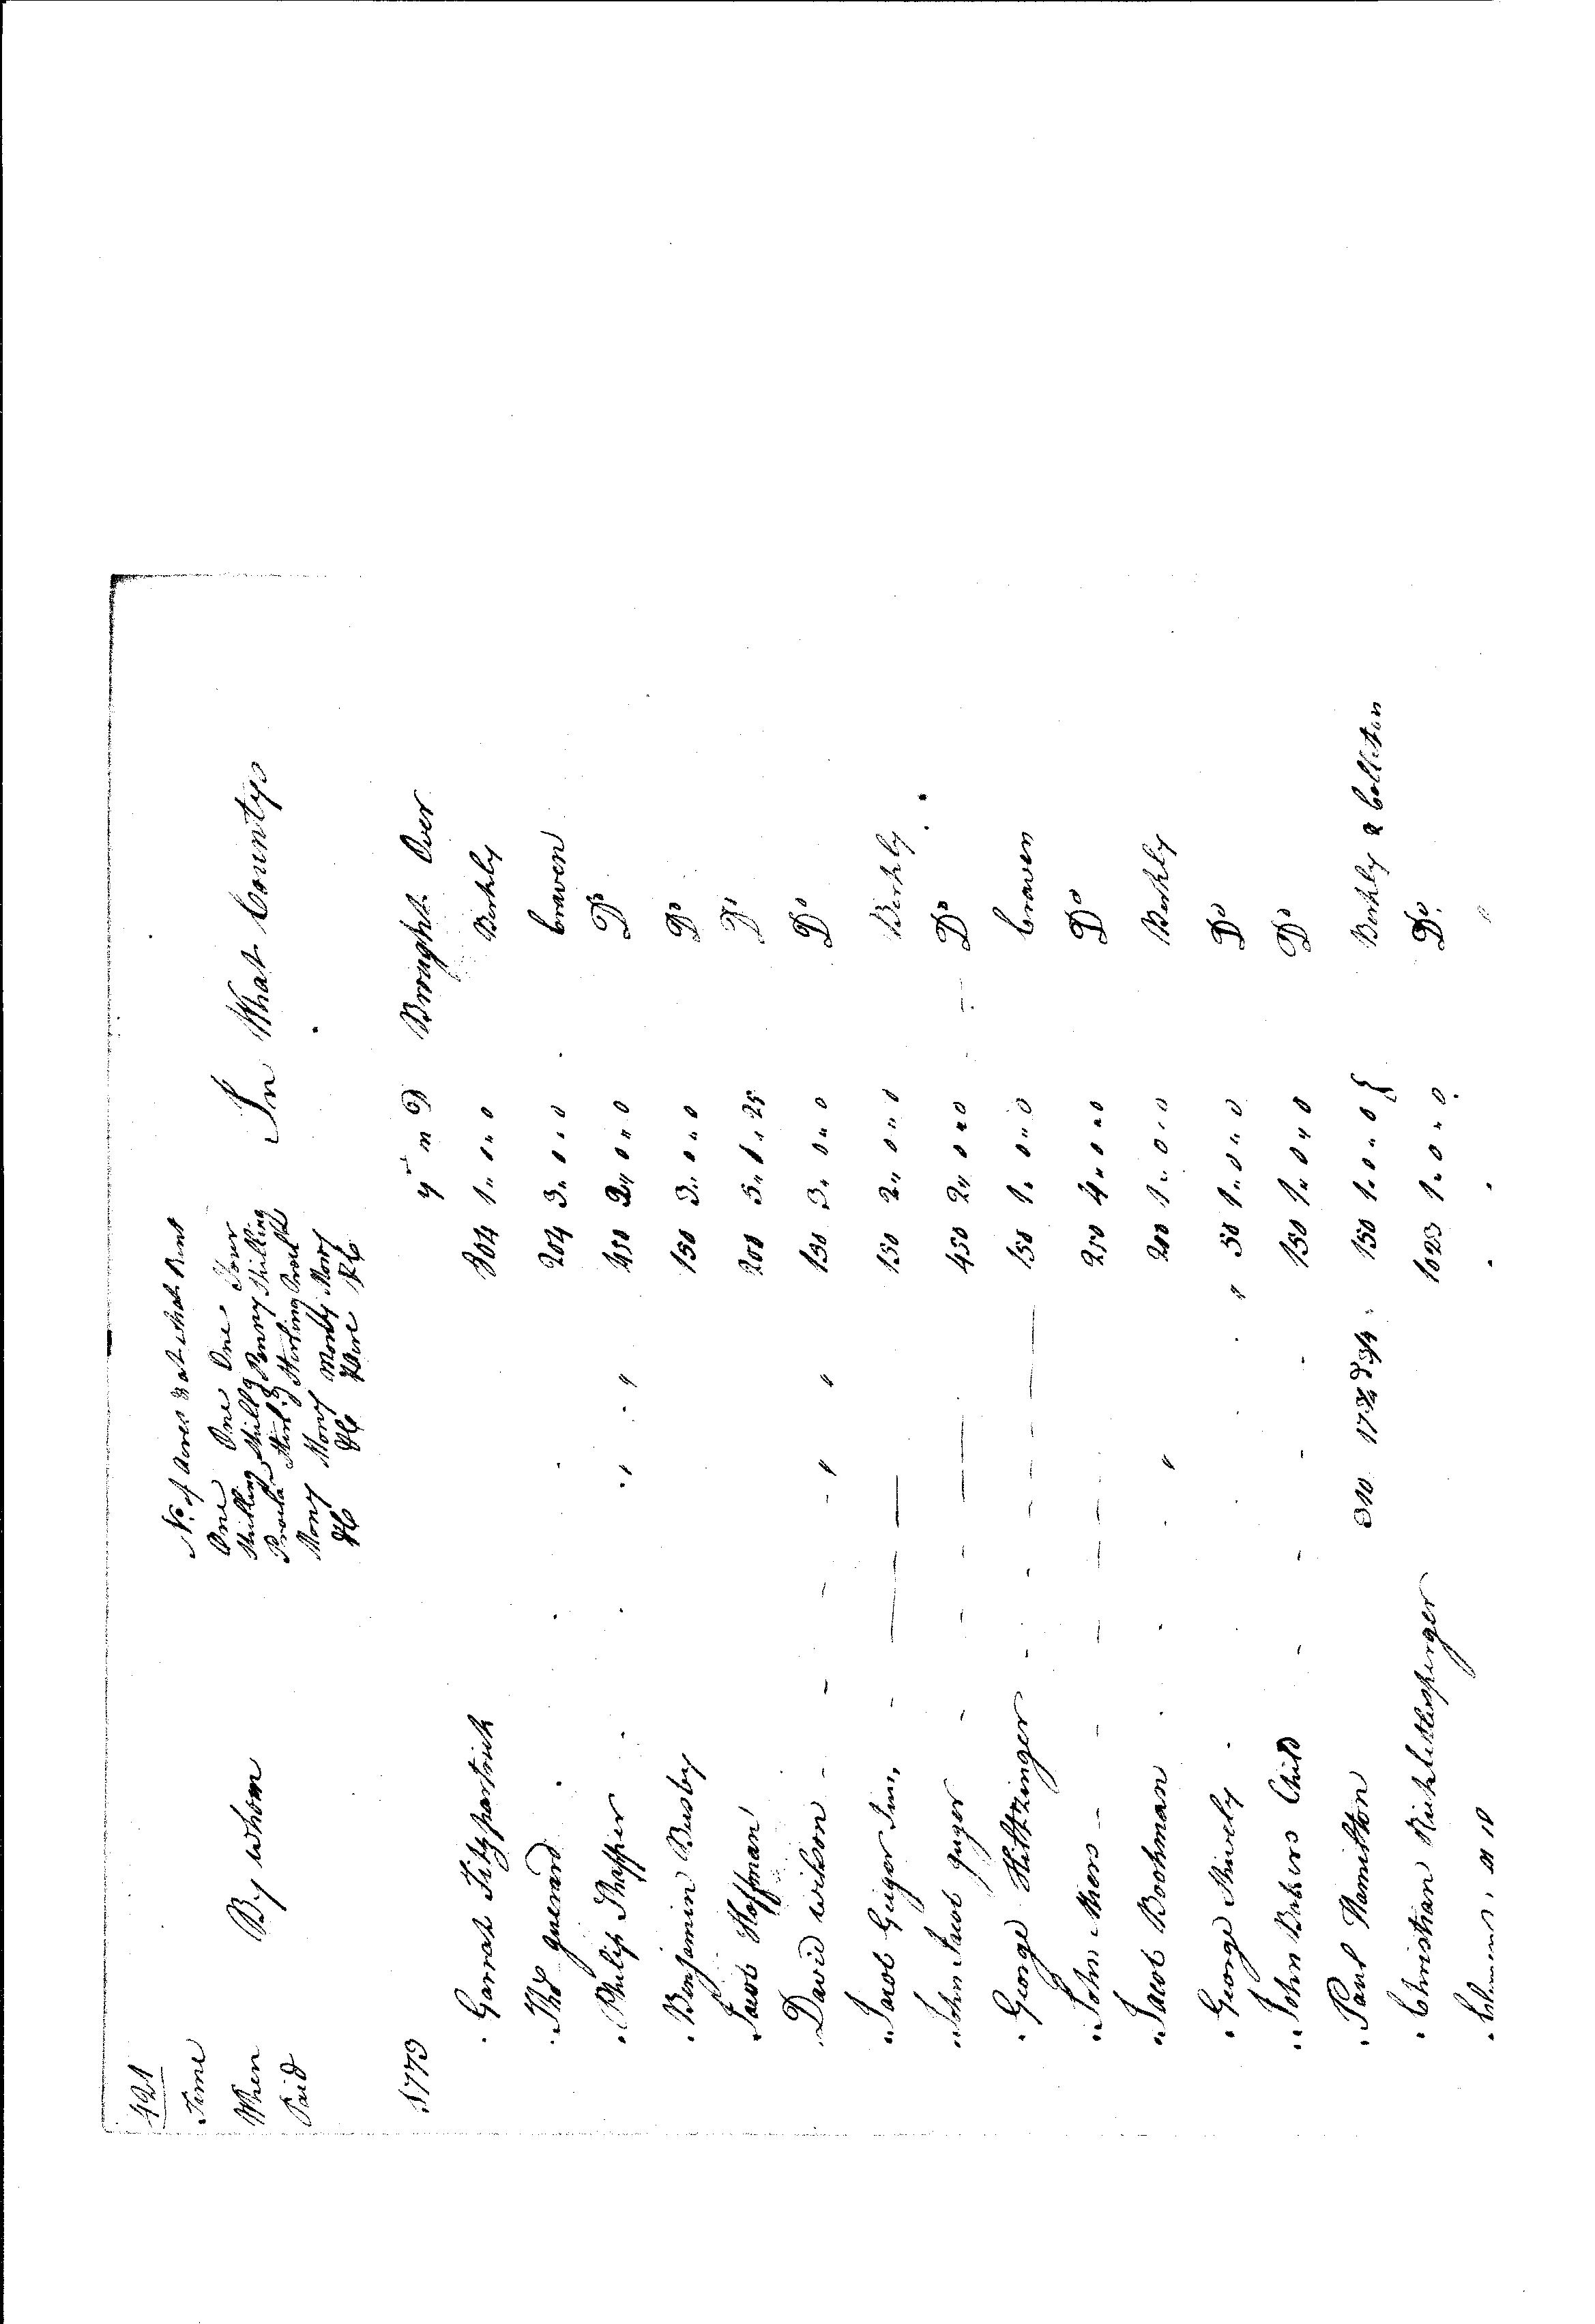 421
Time When Paid
By whom
No. of Acres & at what Rent
One Shilling Procla. Mony &c
One Shillg Sterlg Mony &c
One Penny Sterling Mony &c
Four Shilling Procla Mony &c
In What Countys
1773 y m D Brought Over
Garrat Fitzpartrick 304 1 " 0 " 0 Berkly
Thos Guerard 204 3 " 0 " 0 Craven
Philip 450 2 " 0 " 0 Do
Benjamin Busby 150 3 " 0 " 0 Do
Jacob Hoffman 200 5 " 1 " 25 Do
David Wilson 150 3 " 0 " 0 Do
Jacob Geiger Jun. 150 2 " 0 " 0 Berkly
John Jacob Geiger 450 2 " 0 " 0 Do
George Hittzinger 150 1 " 0 " 0 Craven
John Miers 250 4 " 0 " 0 Do
Jacob Bookman 200 1 " 0 " 0 Berkly
George Shively 50 1 " 0 " 0 Do
John Bakers Child 150 1 " 0 " 0 Do
Paul Hamilton 310 150 1 " 0 " 0 } Berkly & Colleton
Christian 1023 1 " 0 " 0 Do